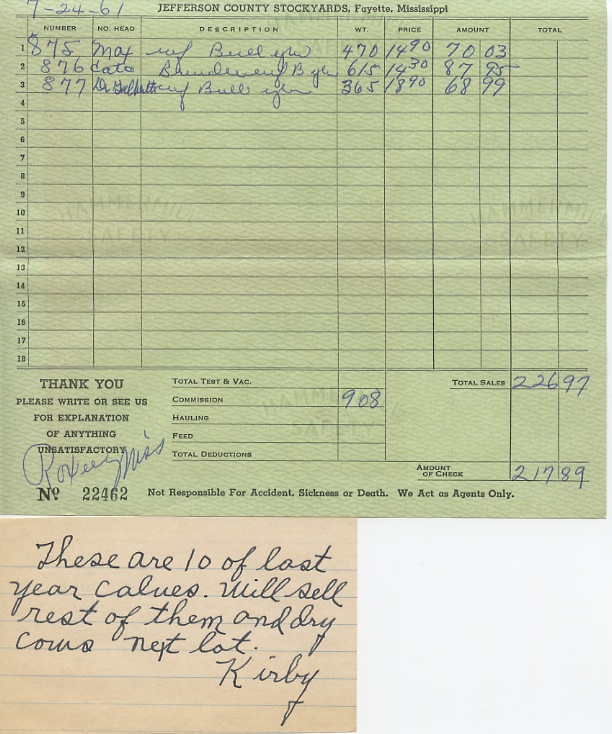 7-24-61 JEFFERSON COUNTY STOCKYARDS, Fayette, Mississippi
NUMBER NO. HEAD DESCRIPTION WT. PRICE AMOUNT TOTAL
1 875 wf Bull 470 14 90 70 03
2 876 615 14 30 87 95
3 877 wf Bull 365 18 90 68 99
4
5
6
7
8
9
10
11
12
13
14
15
16
17
18
HAMMERMILL
SAFETY
HAMMERMILL
SAFETY
THANK YOU
PLEASE WRITE OR SEE US
FOR EXPLANATION
OF ANYTHING
UNSATISFACTORY
Miss
Nº 22462
TOTAL TEST & VAC.
COMMISSION 9 08
HAULING
FEED
TOTAL DEDUCTIONS
HAMMERMILL
SAFETY
TOTAL SALES 226 97
AMOUNT
OF CHECK 217 89
Not Responsible For Accident, Sickness or Death. We Act as Agents Only.
These are 10 of last
year calves. Will sell
rest of them and dry
cows next lot.
Kirby